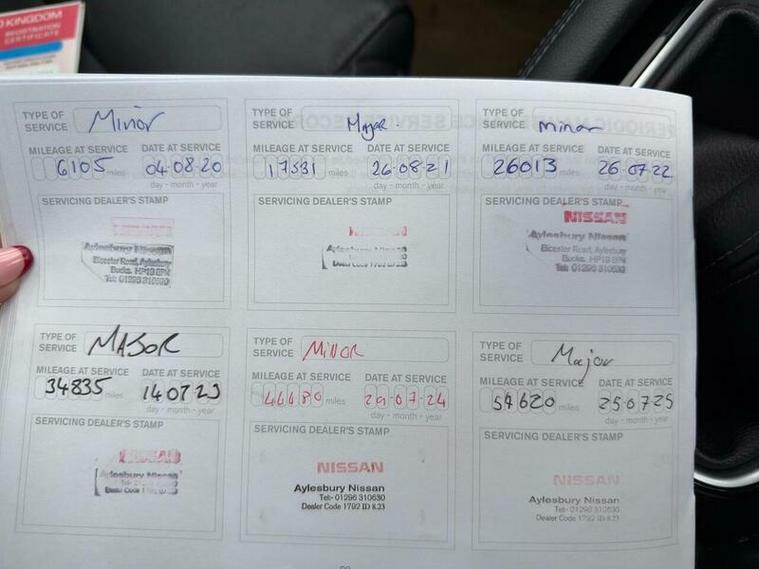 KINGDOM
REGISTRATION
CERTIFICATE
TYPE OF SERVICE Minor
MILEAGE AT SERVICE DATE AT SERVICE
6105 miles 04-08-20
day - month - year
SERVICING DEALER'S STAMP
Aylesbury Nissan
Bicester Road, Aylesbury
Bucks. HP19 8PN
Tel: 01296 310630
TYPE OF SERVICE Major.
MILEAGE AT SERVICE DATE AT SERVICE
17531 miles 26-08-21
day - month - year
SERVICING DEALER'S STAMP
TYPE OF SERVICE minor
MILEAGE AT SERVICE DATE AT SERVICE
26013 miles 26-07-22
day - month - year
SERVICING DEALER'S STAMP
NISSAN
Aylesbury Nissan
Bicester Road, Aylesbury
Bucks. HP19 8PN
Tel: 01296 310630
TYPE OF SERVICE MAJOR
MILEAGE AT SERVICE DATE AT SERVICE
34835 miles 140723
day - month - year
SERVICING DEALER'S STAMP
NISSAN
Aylesbury Nissan
TYPE OF SERVICE MINOR
MILEAGE AT SERVICE DATE AT SERVICE
miles 29-07-24
day - month - year
SERVICING DEALER'S STAMP
NISSAN
Aylesbury Nissan
Tel:- 01296 310630
Dealer Code 1792 ID 8.23
TYPE OF SERVICE Major
MILEAGE AT SERVICE DATE AT SERVICE
54620 miles 250725
day - month - year
SERVICING DEALER'S STAMP
NISSAN
Aylesbury Nissan
Tel:- 01296 310630
Dealer Code 1792 ID 8.23